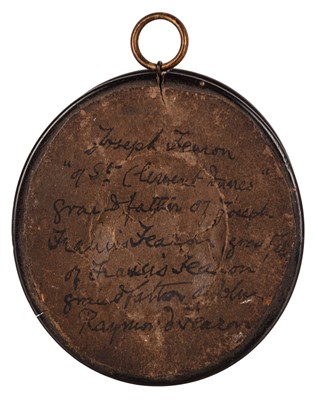 Joseph Fearon
"of St. Clement Danes"
grandfather of Joseph
Francis Fearon
of Francis Fearon
grandfather
Raymond Fearon